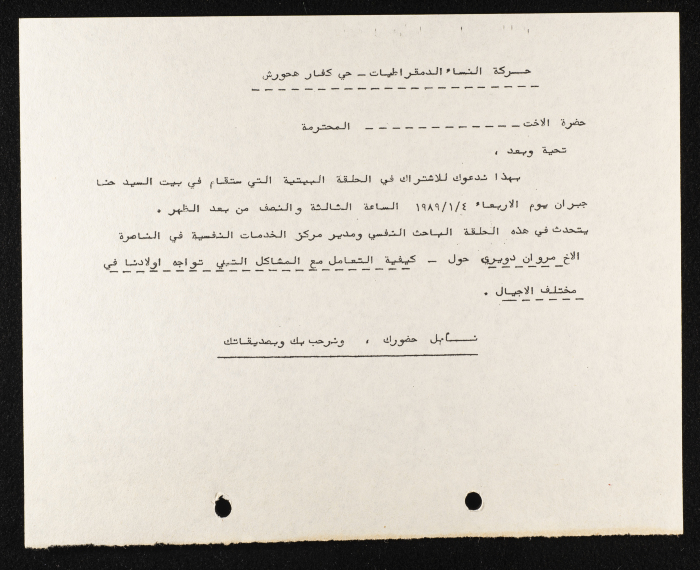 حركة النساء الدمقراطيات - حي كفار هحورش
حضرة الاخت ------------ المحترمة
تحية وبعد ،
بهذا ندعوك للاشتراك في الحلقة البيتية التي ستقام في بيت السيد حنا
جبران يوم الاربعاء ١٩٨٩/١/٤ الساعة الثالثة والنصف من بعد الظهر .
يتحدث في هذه الحلقة الباحث النفسي ومدير مركز الخدمات النفسية في الناصرة
الاخ مروان دويري حول - كيفية التعامل مع المشاكل التيني تواجه اولادنا في
مختلف الاجيال .
نأمل حضورك ، ونرحب بك وبصديقاتك